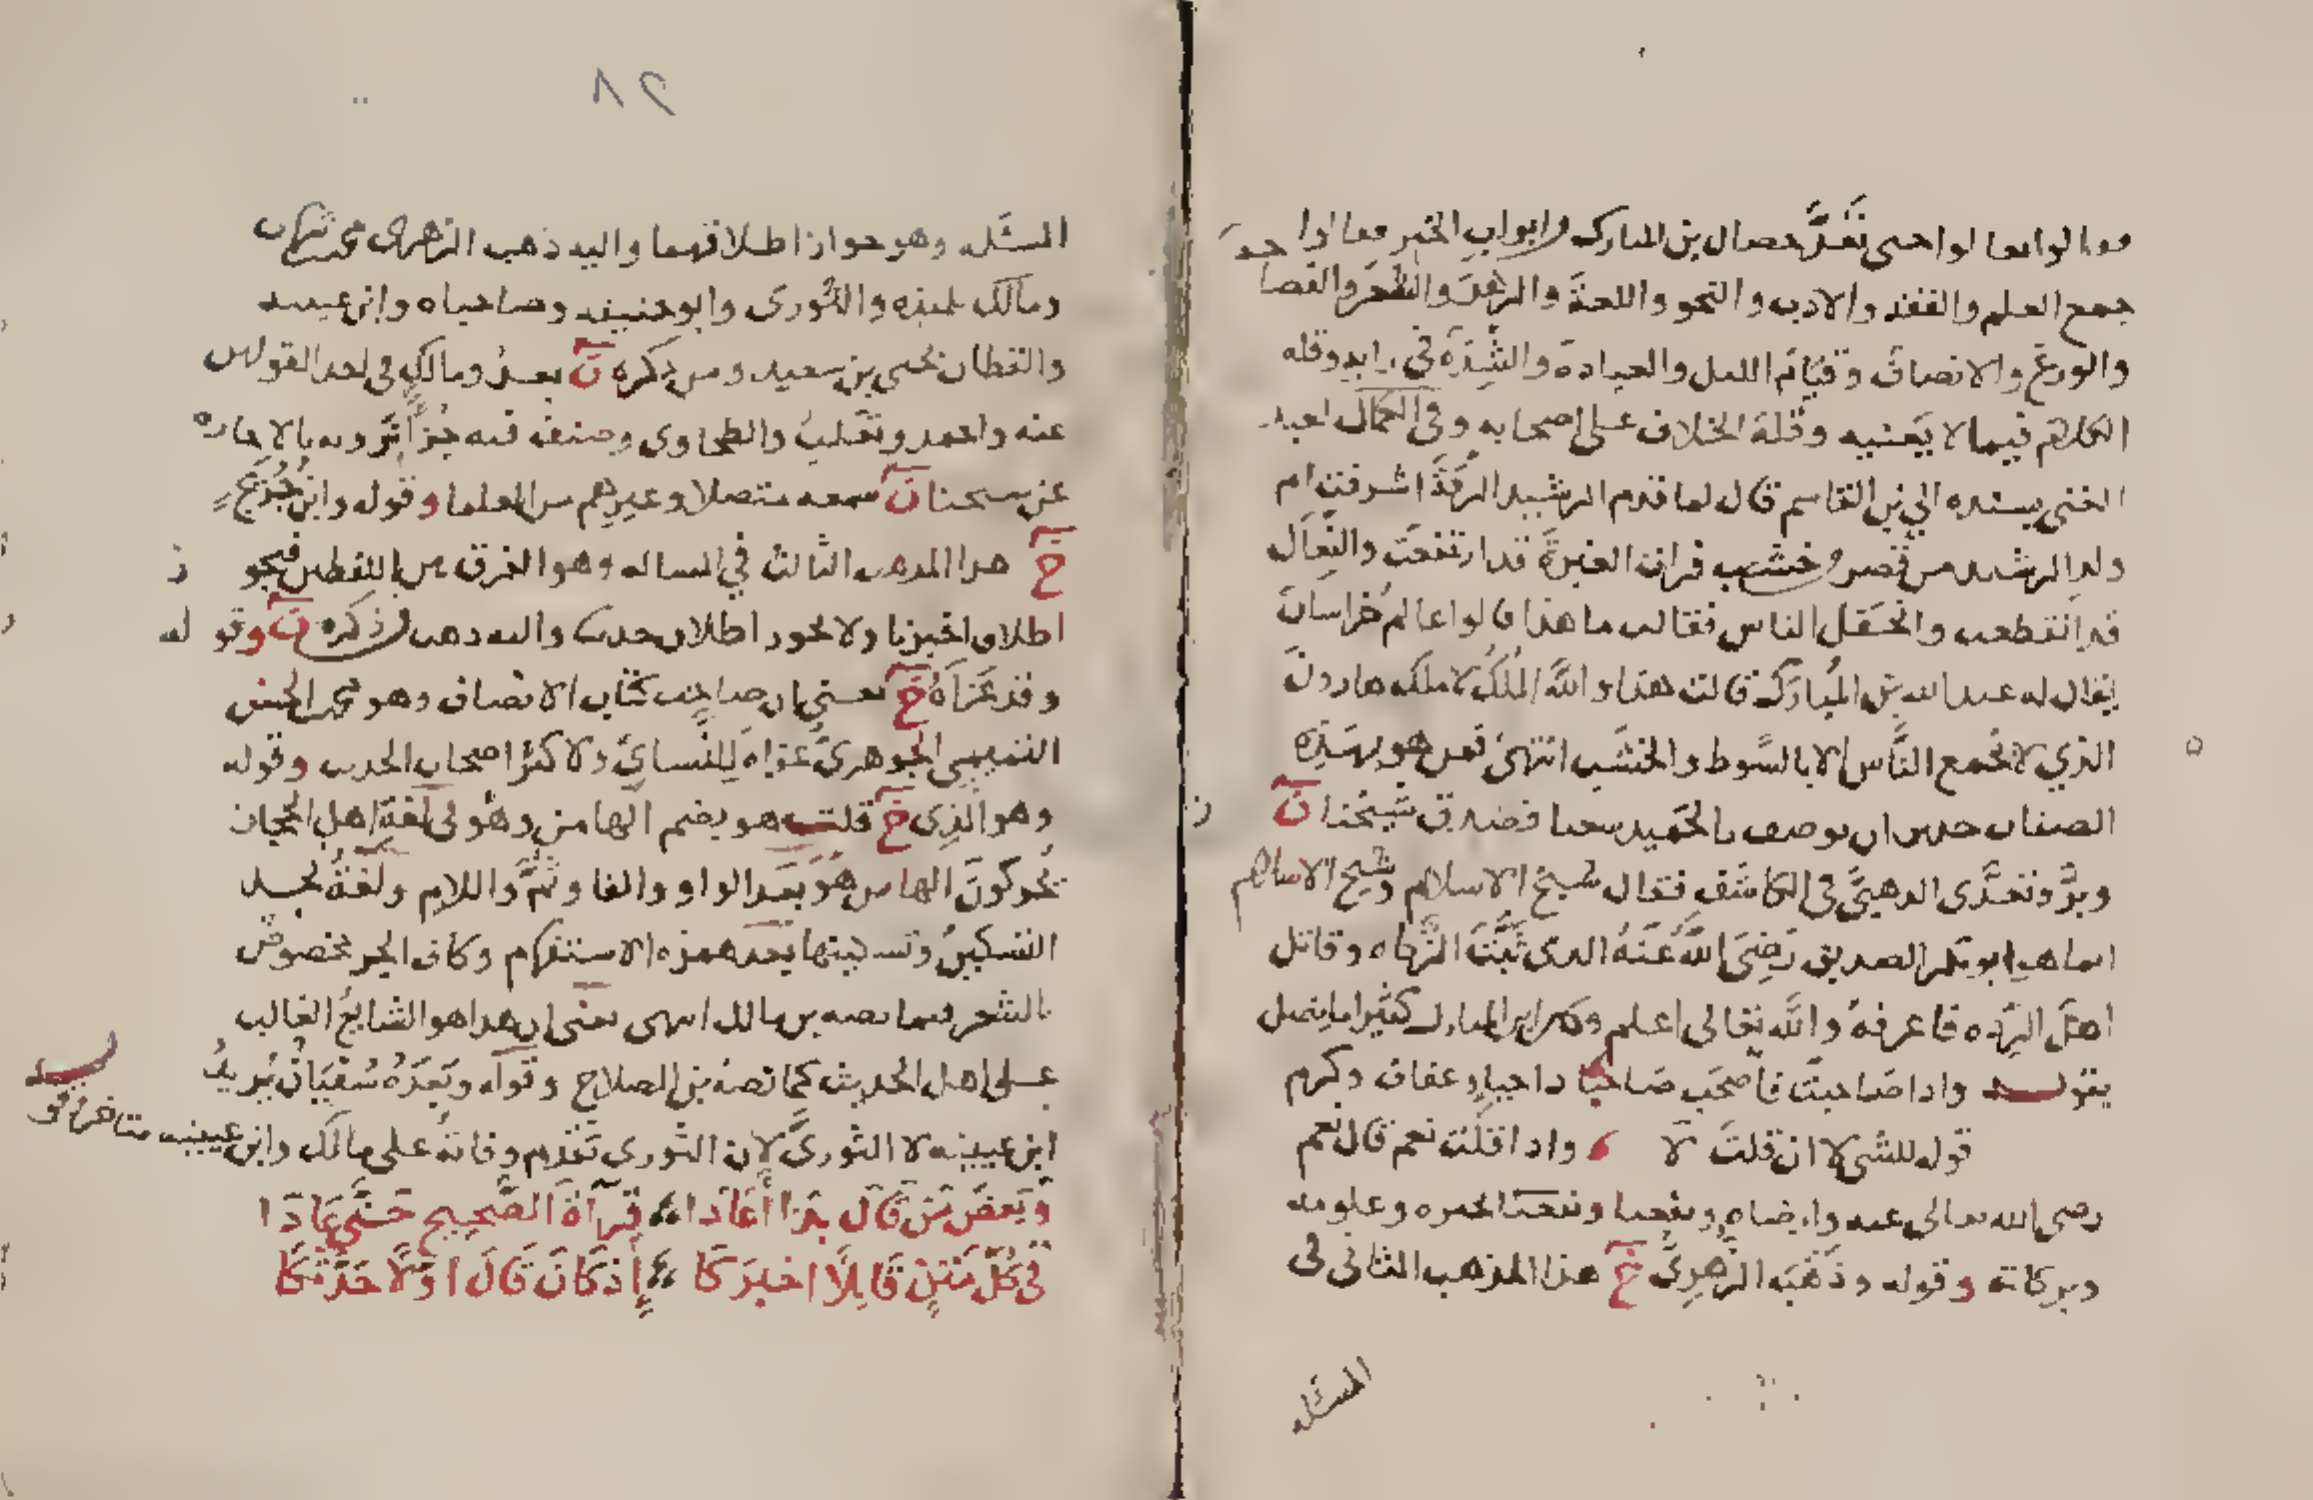 فقالوا تعالوا حتى نعد خصال بن المبارك وابواب الخير فقالوا جمع
جمع العلم والفقه والادب والنحو واللغة والزهد والشعر والفصا
والورع والانصاف وقيام الليل والعبادة والشدة في رايه وقلة
الكلام فيما لا يعنيه وقلة الخلاف على اصحابه وفي الكمال لعبد
الغني بسنده الي بن القاسم قال لما قدم الرشيد الرقة اشرفت ام
ولد الرشيد من قصر خشب فرات الغبرة قد ارتفعت والنعال
قد انقطعت وانحفل الناس فقالت ما هذا قالوا عالم خراسان
يقال له عبد الله بن المبارك قالت هذا والله الملك لا ملك هارون
الذي لا يجمع الناس الا بالسوط والخشب انتهى فمن هو بهذه
الصفات حدير ان يوصف بالحميد سعيا فصدق شيخنا ن
وبر وتعدى الذهبي في الكاشف فقال شيخ الاسلام وشيخ الاسلام
انما هو ابو بكر الصديق رضي الله عنه الذي ثبت الزكاه وقاتل
اهل الرده فاعرفه والله تعالى اعلم وكان ابن المبارك كثيرا ما يتمثل
يقول واذا صاحبت فاصحب صاحبا ذا حياء وعفاف وكرم
قوله للشي لا ان قلت لا واذا قلت نعم قال نعم
رضي الله تعالى عنه وارضاه ونفعنا ونفحنا بخيره وعلومه
وبركاته وقوله وذهب الزهري خ هذا المذهب الثاني في
المسئله
٢٨
المسئله وهو جواز اطلاقهما واليه ذهب الزهري محمد بن شهاب
ومالك تلميذه والثوري وابو حنيفه وصاحباه وابن عيينه
والقطان يحيى بن سعيد ومن ذكره ن بعد ومالك في احد القولين
عنه واحمد وثعلب والطحاوي وصنف فيه جزأ نرويه بالاجازه
عن شيخنا ن سمعه متصلا وغيرهم من العلما وقوله وابن جريج
خ هذا المذهب الثالث في المساله وهو الفرق بين اللفظين فيجوز
اطلاق اخبرنا ولا يجوز اطلاق حدثنا واليه ذهب من ذكره ن وقوله
وقد عزاه خ يعني ان صاحب كتاب الانصاف وهو محمد بن الحسن
التميمي الجوهري عزاه للنسائي ولاكثر اصحاب الحديث وقوله
وهو الذي خ قلت هو بضم الها من وهو لى لغة اهل الحجاز
يحركون الها من هو بعد الواو والفا وثم واللام ولغة نجد
التسكين وتسكينها بعد همزه الاستفهام وكاف الجر مخصوص
بالشعر فيما نصه بن مالك انتهى يعني ان هذا هو الشايع الغالب
على اهل الحديث كما نصه بن الصلاح وقوله وبعده سفيان يريد
ابن عيينه لا الثوري لان الثوري تقدم وفاته على مالك وابن عيينه متاخر قوله
وبعض من قال بذا أعادا قرآة الصحيح حتى عادا
في كل متن قايلا اخبركا إذ كان قال اولا حدثكا